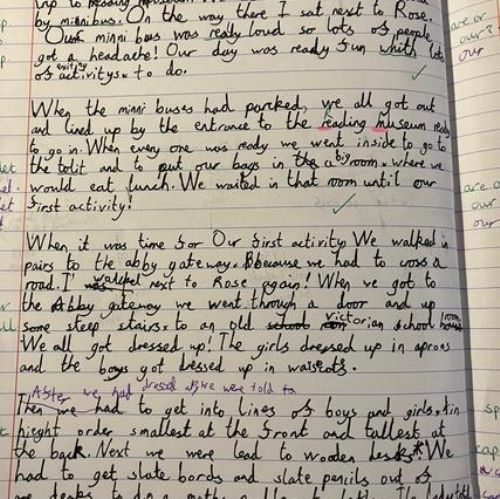 trip to reading museum
by minni bus. On the way there I sat next to Rose.
Our minni bus was really loud so lots of people
got a headache! Our day was really fun whith lots
of exity activitys. to do.
When the minni buses had parcked, we all got out
and lined up by the entrance to the reading museum ready
to go in. When every one was ready we went inside to go to
the tolit and to put our bags in the a big room. where we
would eat lunch. We waited in that room until our
first activity!
When it was time for Our first activity We walked in
pairs to the abby gateway. Bbecause we had to cross a
road. I walked next to Rose again! When we got to
the Abby gateway we went through a door and up
some steep stairs. to an old school room victorian school room
We all got dressed up! The girls dressed up in aprons
and the boys got dressed up in waiscots.
After we had dressed up we were told to
Then we had to get into lines of boys and girls. in
hieght order smallest at the front and tallest at
the back. Next we were lead to wooden desks. We
had to get slate bords and slate pencils out of
are or
our?
our
are or
our
our
sp
cap